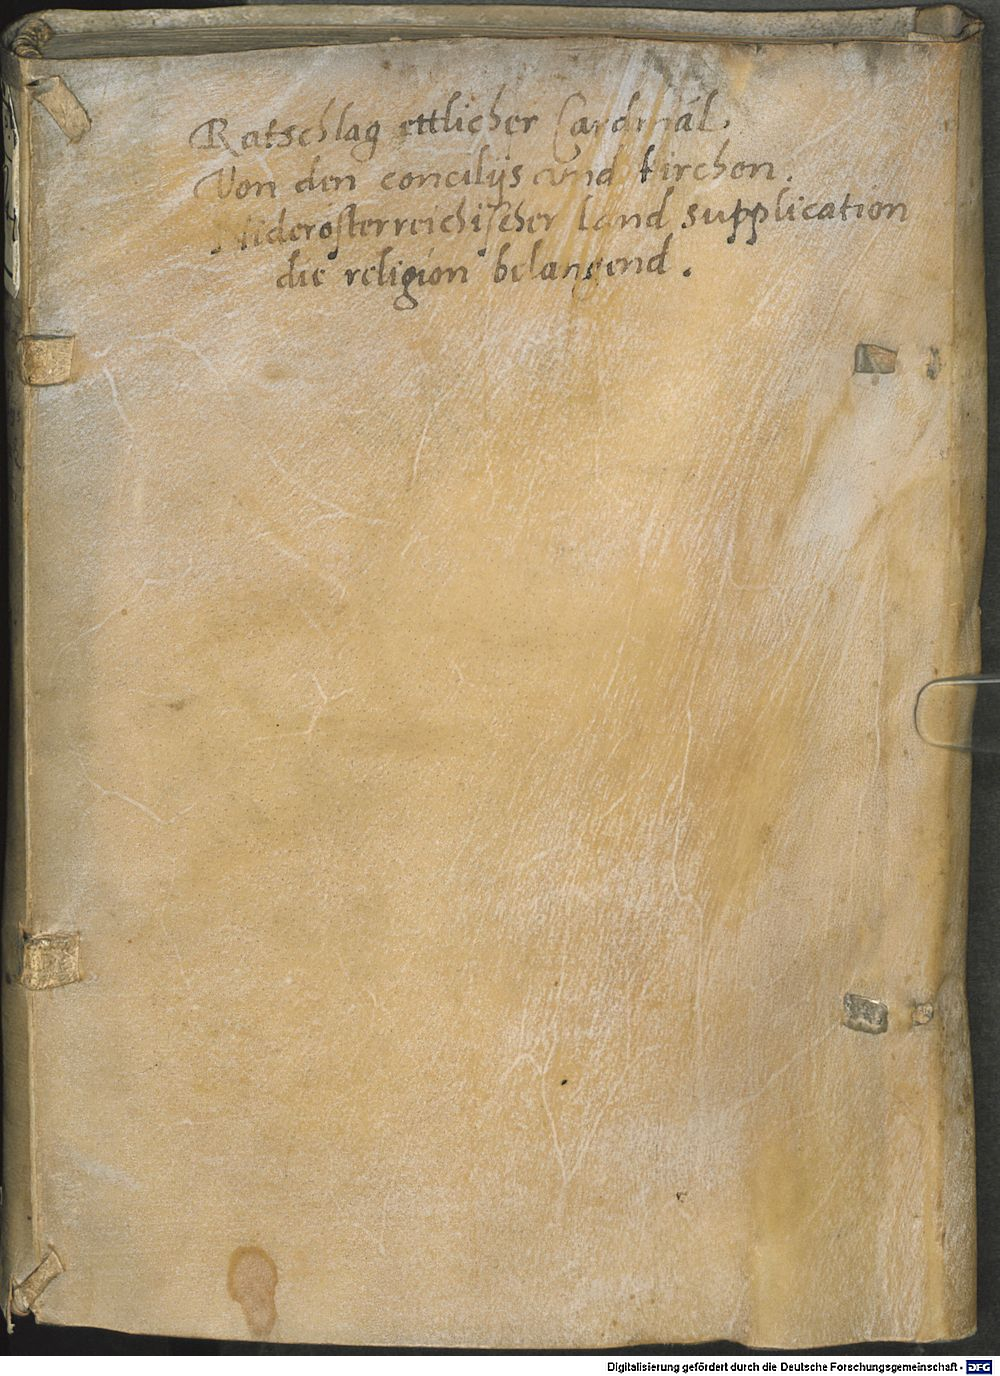 Ratschlag ettlicher Cardinäl.
Von den concilijs vnd kirchen.
Niderösterreichischer land supplication
die religion belangend.
Digitalisierung gefördert durch die Deutsche Forschungsgemeinschaft - DFG